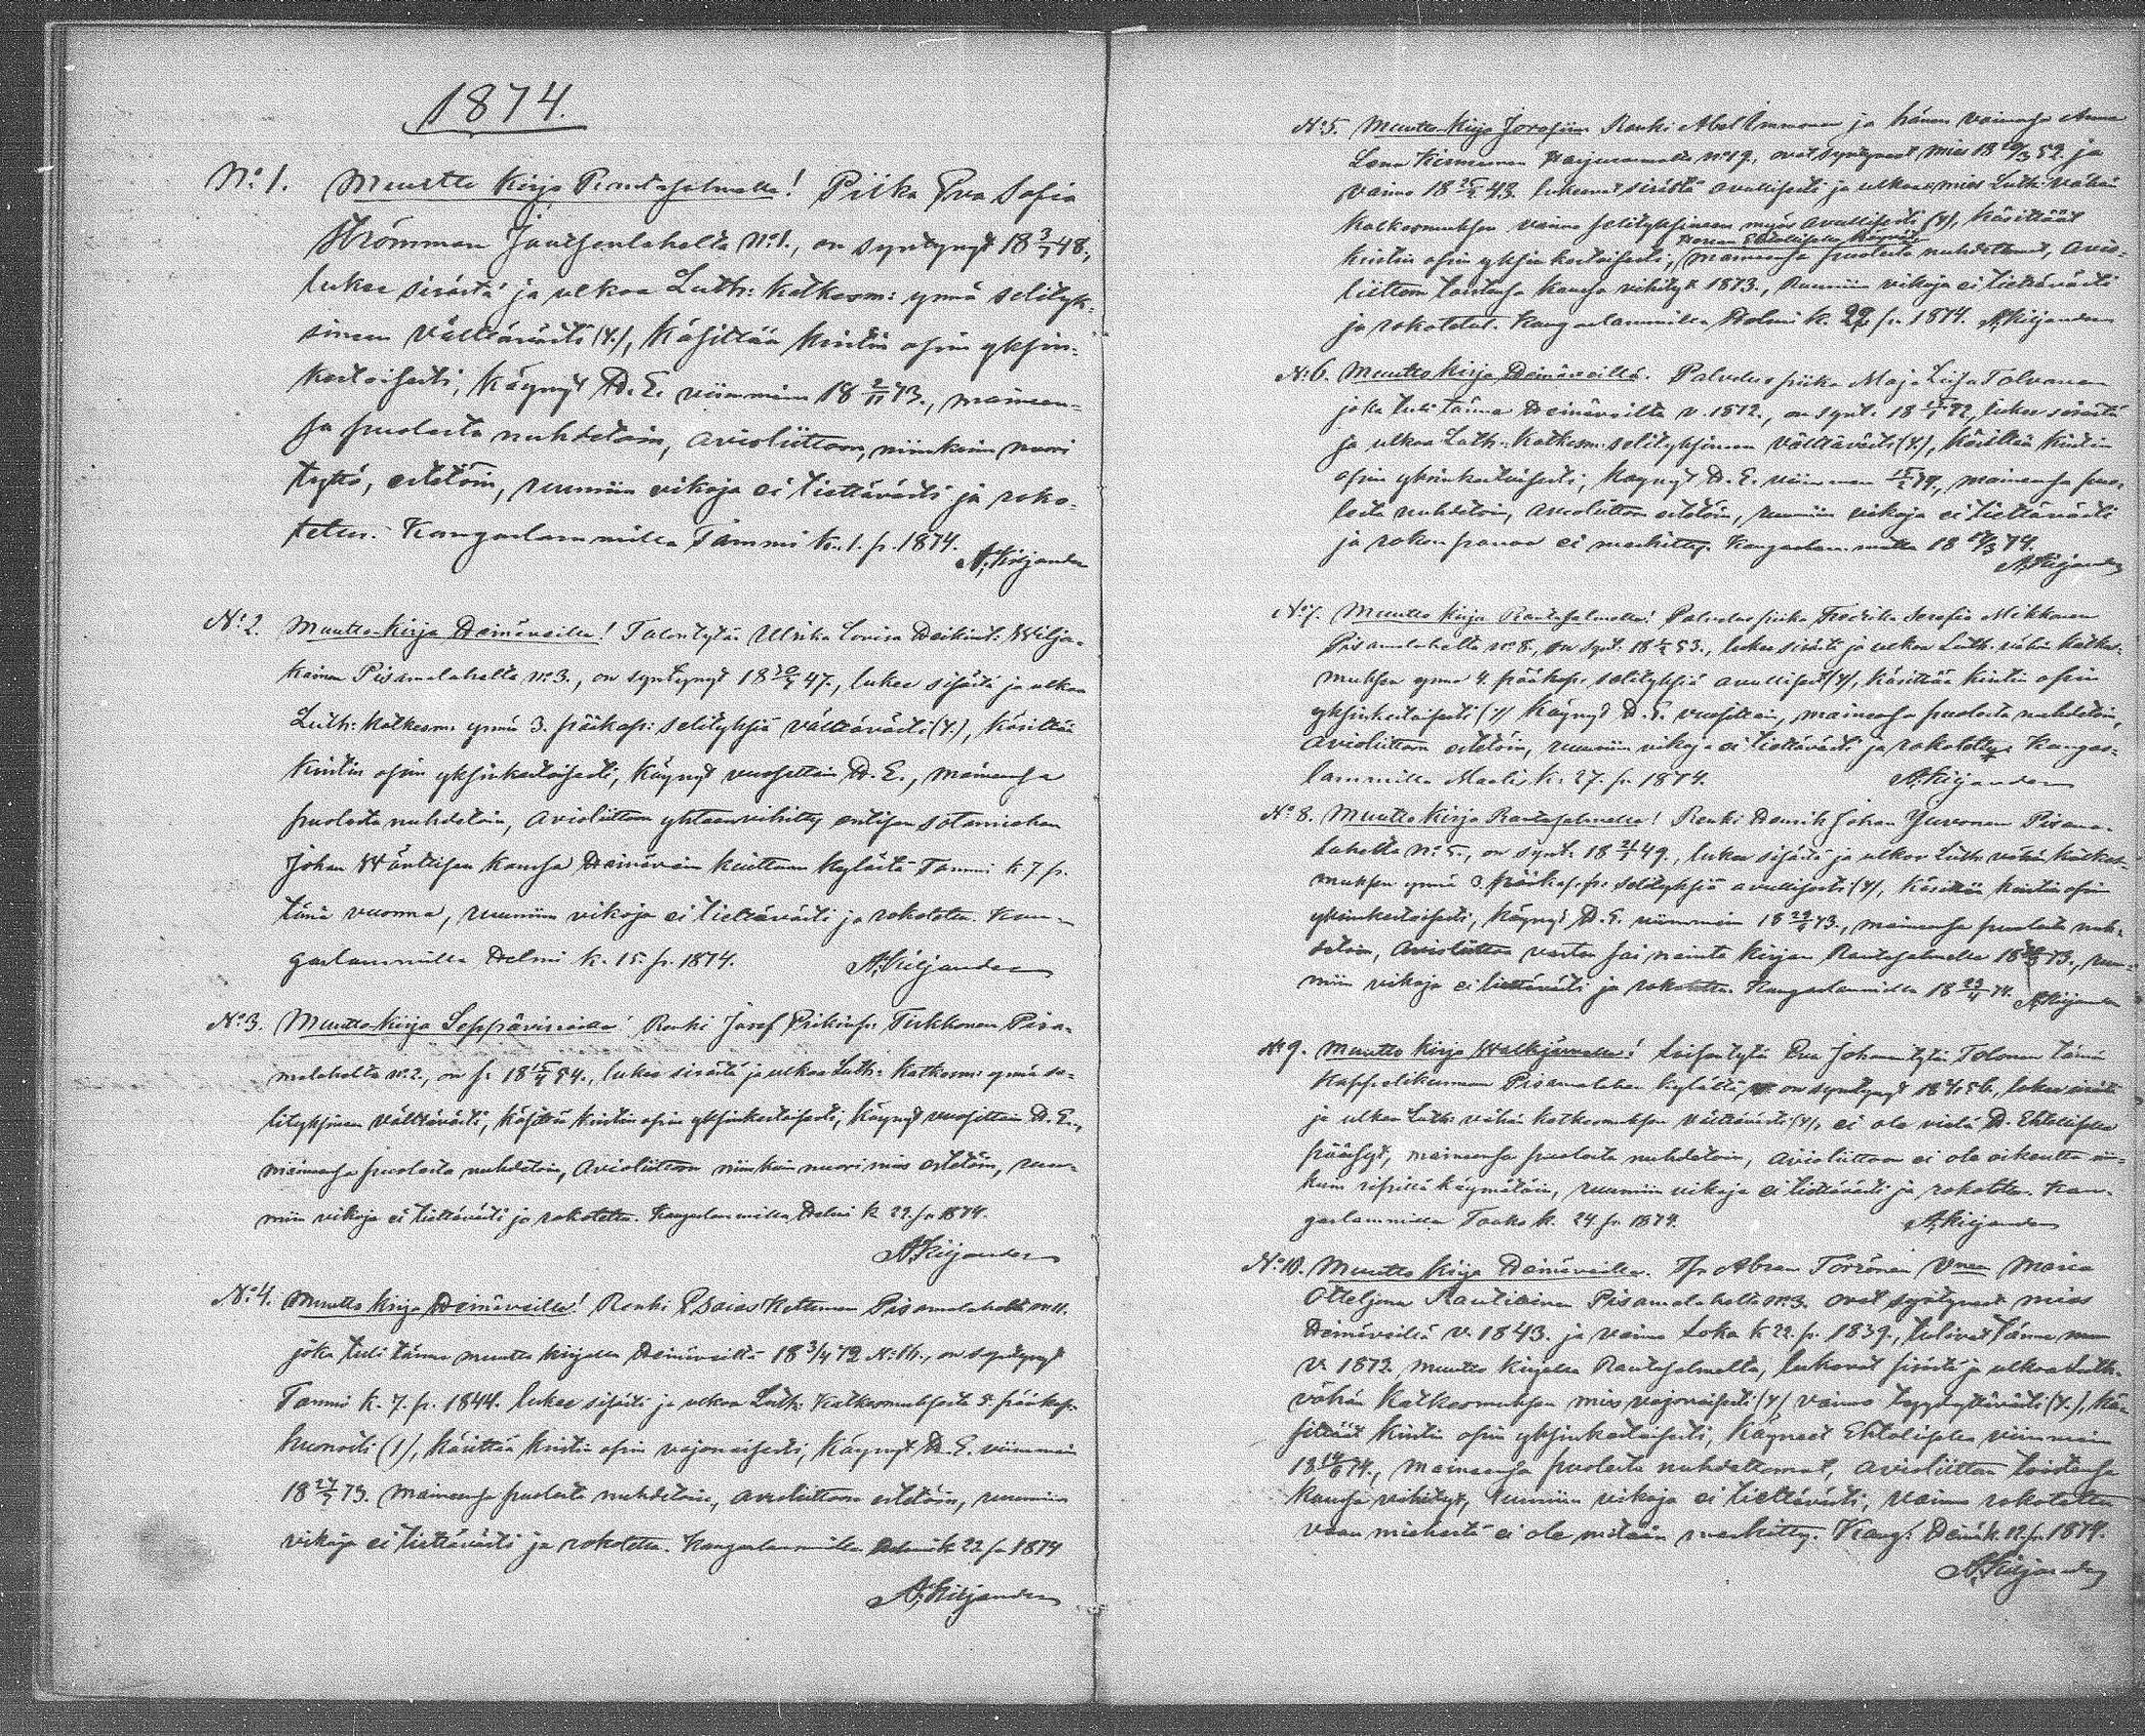 1874.
No: 1. Muutto Kirja Rantasalmelle! Piika Eva Sofia
Strömman Jäntsenlahelta No: 1., on syntynyt 18 3/7 48.,
lukee sisästä ja ulkoa Luth: Katkesm: ynnä selityk-
sineen välttävästi (x.), käsittää kristin opin yksin-
kertaisesti, käynyt H. E. viimmein 18 2/11 73., maineen-
sa puolesta nuhdetoin, avioliittoon, niinkuin nuori
tyttö, esteetöin, ruumiin vikoja ei tiettävästi ja roko-
tettu. Kangaslammilla Tammi k. 1. p. 1874.
A. Kiljander
No: 2. Muutto-kirja Heinäveille! Talontytär Ulrika Lovisa Heikint: Wilja-
kainen Pisamalahelta no: 3., on syntynyt 18 30/7 47., lukee sisästä ja ulkoa
Luth: Katkesm: ynnä 3. pääkap: selityksiä välttävästi (x.), käsittää
kristin opin yksinkertaisesti, käynyt vuosittain H. E., maineensa
puolesta nuhdetoin, avioliittoon yhteenvihitty entisen sotamiehen
Johan Wäntisen kanssa Heinävein kylästä Tammi k. 7 p.
tänä vuonna, ruumiin vikoja ei tiettävästi ja rokotettu. Kan-
gaslammilla Helmi k. 15. p. 1874. A. Kiljander
No: 3. Muutto-kirja Leppävirroille! Renki Josef Erikinp: Tirkkonen Pisa-
malahelta no: 2., on s. 18 54., lukee sisästä ja ulkoa Luth: Katkesm: ynnä se-
lityksineen välttävästi, käsittää kristin opin yksinkertaisesti, käynyt vuosittain H. E.,
maineensa puolesta nuhdetoin, avioliittoon niinkuin nuori mies esteetöin, ruu-
miin vikoja ei tiettävästi ja rokotettu. Kangaslammilla Helmi k. 22. p. 1874.
A. Kiljander
No: 4. Muutto kirja Heinäveille! Renki Esaias Kettunen Pisamalahelta no 11.
joka tuli tänne muutto kirjalla Heinäveiltä 18 3/4 72 No: 16., on syntynyt
Tammi k. 7. p. 1844. lukee sisästä ja ulkoa Luth: Katkesmuksesta 5. pääkap.
huonosti (1), käsittää kristin opin vajanaisesti, käynyt H. E. viimmein
18 27/7 73. maineensa puolesta nuhdetoin, avioliittoon esteetöin, ruumiin
vikoja ei tiettävästi ja rokotettu. Kangaslammilla Helmi k 22. p. 1874
A. Kiljander
No: 5. Muutto-kirja Joroisiin Renki Abel Immonen ja hänen vaimonsa Anna
Lena Kinnunen Harjurannalta no: 19., ovat syntyneet mies 18 52. ja
vaimo 18 43. lukeneet sisästä avullisesti ja ulkoa mies Luth: vähän
Katkesmuksen vaimo selityksineen myös avullisesti (x), käsittäät
Herran Ehtoollisella käyneet
kristin opin yksin kertaisesti, maineensa puolesta nuhdettomat, avio-
liittoon toistensa kanssa vihityt 1873., Ruumiin vikoja ei tiettävästi
ja rokotetut. Kangaslammilla Helmi k. 22. p. 1874. A. Kiljander
No: 6. Muutto kirja Heinäveille. Palvelus piika Maja Liisa Tolvanen
joka tuli tänne Heinäveiltä v. 1872., on synt. 18, lukee sisästä
ja ulkoa Luth: Katkesm: selityksineen välttävästi (x.), käsittää kristin
opin yksinkertaisesti; käynyt H. E. viimmein 74., maineensa puo-
lesta nuhdetoin, avioliittoon esteetöin, ruumiin vikoja ei tiettävästi
ja rokon panoa ei merkitty. Kangaslammilla 18 74.
A. Kiljander
No: 7. Muutto kirja Rantasalmelle! Palvelus piika Fredrika Serafia Mikkonen
Pisamalahelta no: 8., on synt. 18 53., lukee sisästä ja ulkoa Luth. vähän Katkes-
muksen ynnä 4. pääkap: selityksiä avullisesti (x), käsittää kristin opin
yksinkertaisesti (x) käynyt H. E. vuosittain, maineensa puolesta nuhdetoin,
avioliittoon esteetöin, ruumiin vikoja ei tiettävästi ja rokotettu. Kangas-
lammilla Maalis k: 27. p. 1874. A. Kiljander
No: 8. Muutto kirja Rantasalmelle! Renki Henrik Johan Juvonen Pisama-
lahelta no: 5., on synt: 18 49., lukee sisästä ja ulkoa Luth. vähän Katkes-
muksen ynnä 3. pääkap. selityksiä avullisesti (x), käsittää kristin opin
yksinkertaisesti, käynyt H. E. viimmein 18 73., maineensa puolesta nuh-
detoin, avioliittoa varten sai nainta kirjan Rantasalmelle 18 73., ruu-
miin vikoja ei tiettävästi ja rokotettu. Kangaslammilla 18 23/4 74. A. Kiljander
No 9. Muutto kirja Walkjärvelle! Loisentytär Eva Johanintytär Tolonen tämän
Kappelikunnan Pisamalahen kylästä, on syntynyt 18 56., lukee sisästä
ja ulkoa Luth: vähän katkesmuksen välttävästi (x), ei ole vielä H. Ehtollisella
päässyt, maineensa puolesta nuhdetoin, avioliittoon ei ole oikeutta nii-
kuin ripillä käymätöin, ruumiin vikoja ei tiettävästi ja rokotettu. Kan-
gaslammilla Touko k. 24. p. 1874. A. Kiljander
No: 10. Muutto kirja Heinäveille. Abram Törrönen Vmo Maria
Otteljana Rautiainen Pisamalahelta no: 3. ovat syntyneet mies
Heinäveillä v. 1843. ja vaimo Loka k 22. p. 1839., tulivat tänne
v. 1872. muutto kirjalla Rantasalmelta, lukevat sisästä ja ulkoa Luth.
vähän Katkesmuksen mies vajonaisesti (x) vaimo tyydyttävästi (x.), kä-
sittäät kristin opin yksinkertaisesti, käyneet Ehtolisella viimmein
18 14/6 74., maineensa puolesta nuhdettomat, avioliittoon toistensa
kanssa vihityt, ruumiin vikoja ei tiettävästi, vaimo rokotettu
vaan miehestä ei ole mitään merkitty. Kang: Heinä k. 12. p. 1874.
A. Kiljander